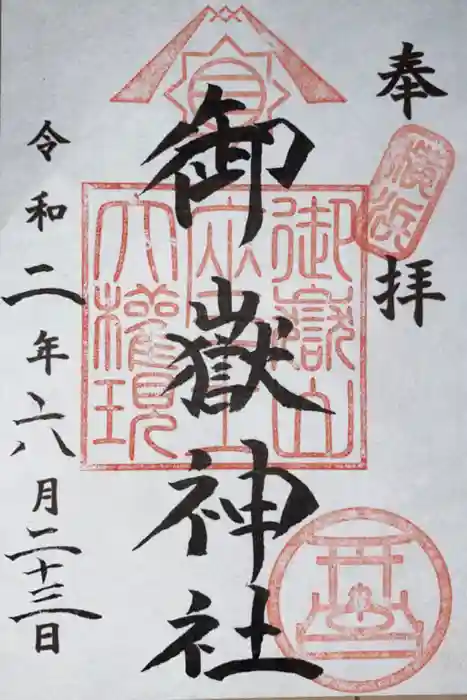 奉拝
横浜
御嶽神社
御嶽山
大権現
令和二年六月二十三日